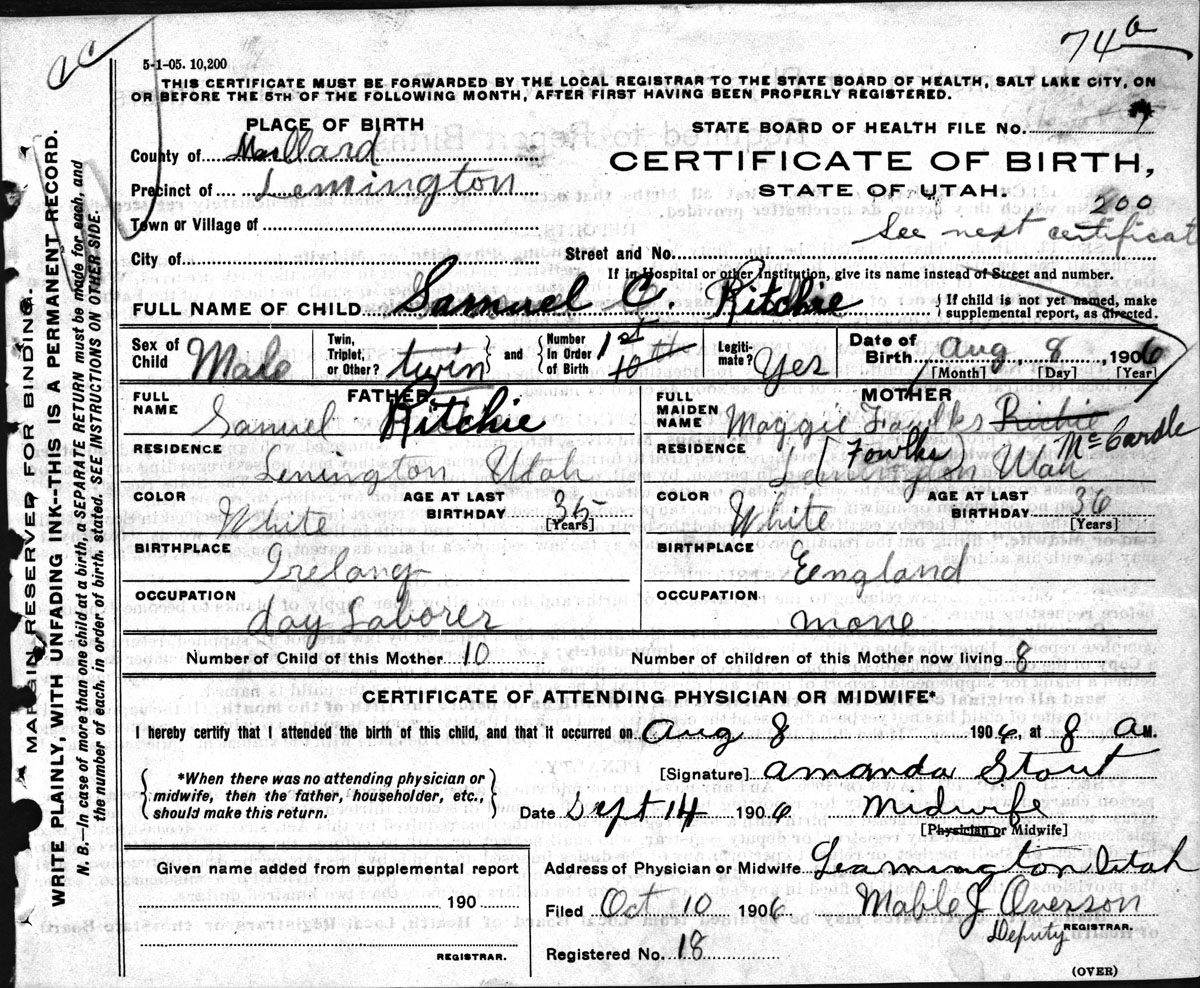 CC
74a
5-1-05. 10,200
THIS CERTIFICATE MUST BE FORWARDED BY THE LOCAL REGISTRAR TO THE STATE BOARD OF HEALTH, SALT LAKE CITY, ON
OR BEFORE THE 5TH OF THE FOLLOWING MONTH, AFTER FIRST HAVING BEEN PROPERLY REGISTERED.
PLACE OF BIRTH
STATE BOARD OF HEALTH FILE NO.
County of Millard
CERTIFICATE OF BIRTH,
Precinct of Lemington
STATE OF UTAH.
200
Town or Village of
See next certificat
City of
Street and No.
If in Hospital or other Institution, give its name instead of Street and number.
FULL NAME OF CHILD Samuel C. Ritchie { If child is not yet named, make supplemental report, as directed.
Sex of Child Male Twin, Triplet, or Other? twin } and { Number in Order of Birth 1st 10th Legiti-mate? Yes Date of Birth Aug 8, 1906
[Month] [Day] [Year]
FATHER
MOTHER
FULL NAME Samuel Ritchie
FULL MAIDEN NAME Maggie Fowlks Richie
[Fowlks] McCardle
RESIDENCE Lemington Utah
RESIDENCE Lemington Utah
COLOR White AGE AT LAST BIRTHDAY 35 [Years]
COLOR White AGE AT LAST BIRTHDAY 36 [Years]
BIRTHPLACE Irelang
BIRTHPLACE Eengland
OCCUPATION day Laborer
OCCUPATION mone
Number of Child of this Mother 10 Number of children of this Mother now living 8
CERTIFICATE OF ATTENDING PHYSICIAN OR MIDWIFE*
I hereby certify that I attended the birth of this child, and that it occurred on Aug 8 1906, at 8 A M.
{ *When there was no attending physician or midwife, then the father, householder, etc., should make this return. }
[Signature] Amanda Stout
Date Sept 14 1906 Midwife
[Physician or Midwife]
Given name added from supplemental report
190
REGISTRAR.
Address of Physician or Midwife Leamington Utah
Filed Oct 10 1906 Mable J Overson
Deputy REGISTRAR.
Registered No. 18
(OVER)
MARGIN RESERVED FOR BINDING.
WRITE PLAINLY, WITH UNFADING INK-THIS IS A PERMANENT RECORD.
N. B.—In case of more than one child at a birth, a SEPARATE RETURN must be made for each, and
the number of each, in order of birth, stated. SEE INSTRUCTIONS ON OTHER SIDE.